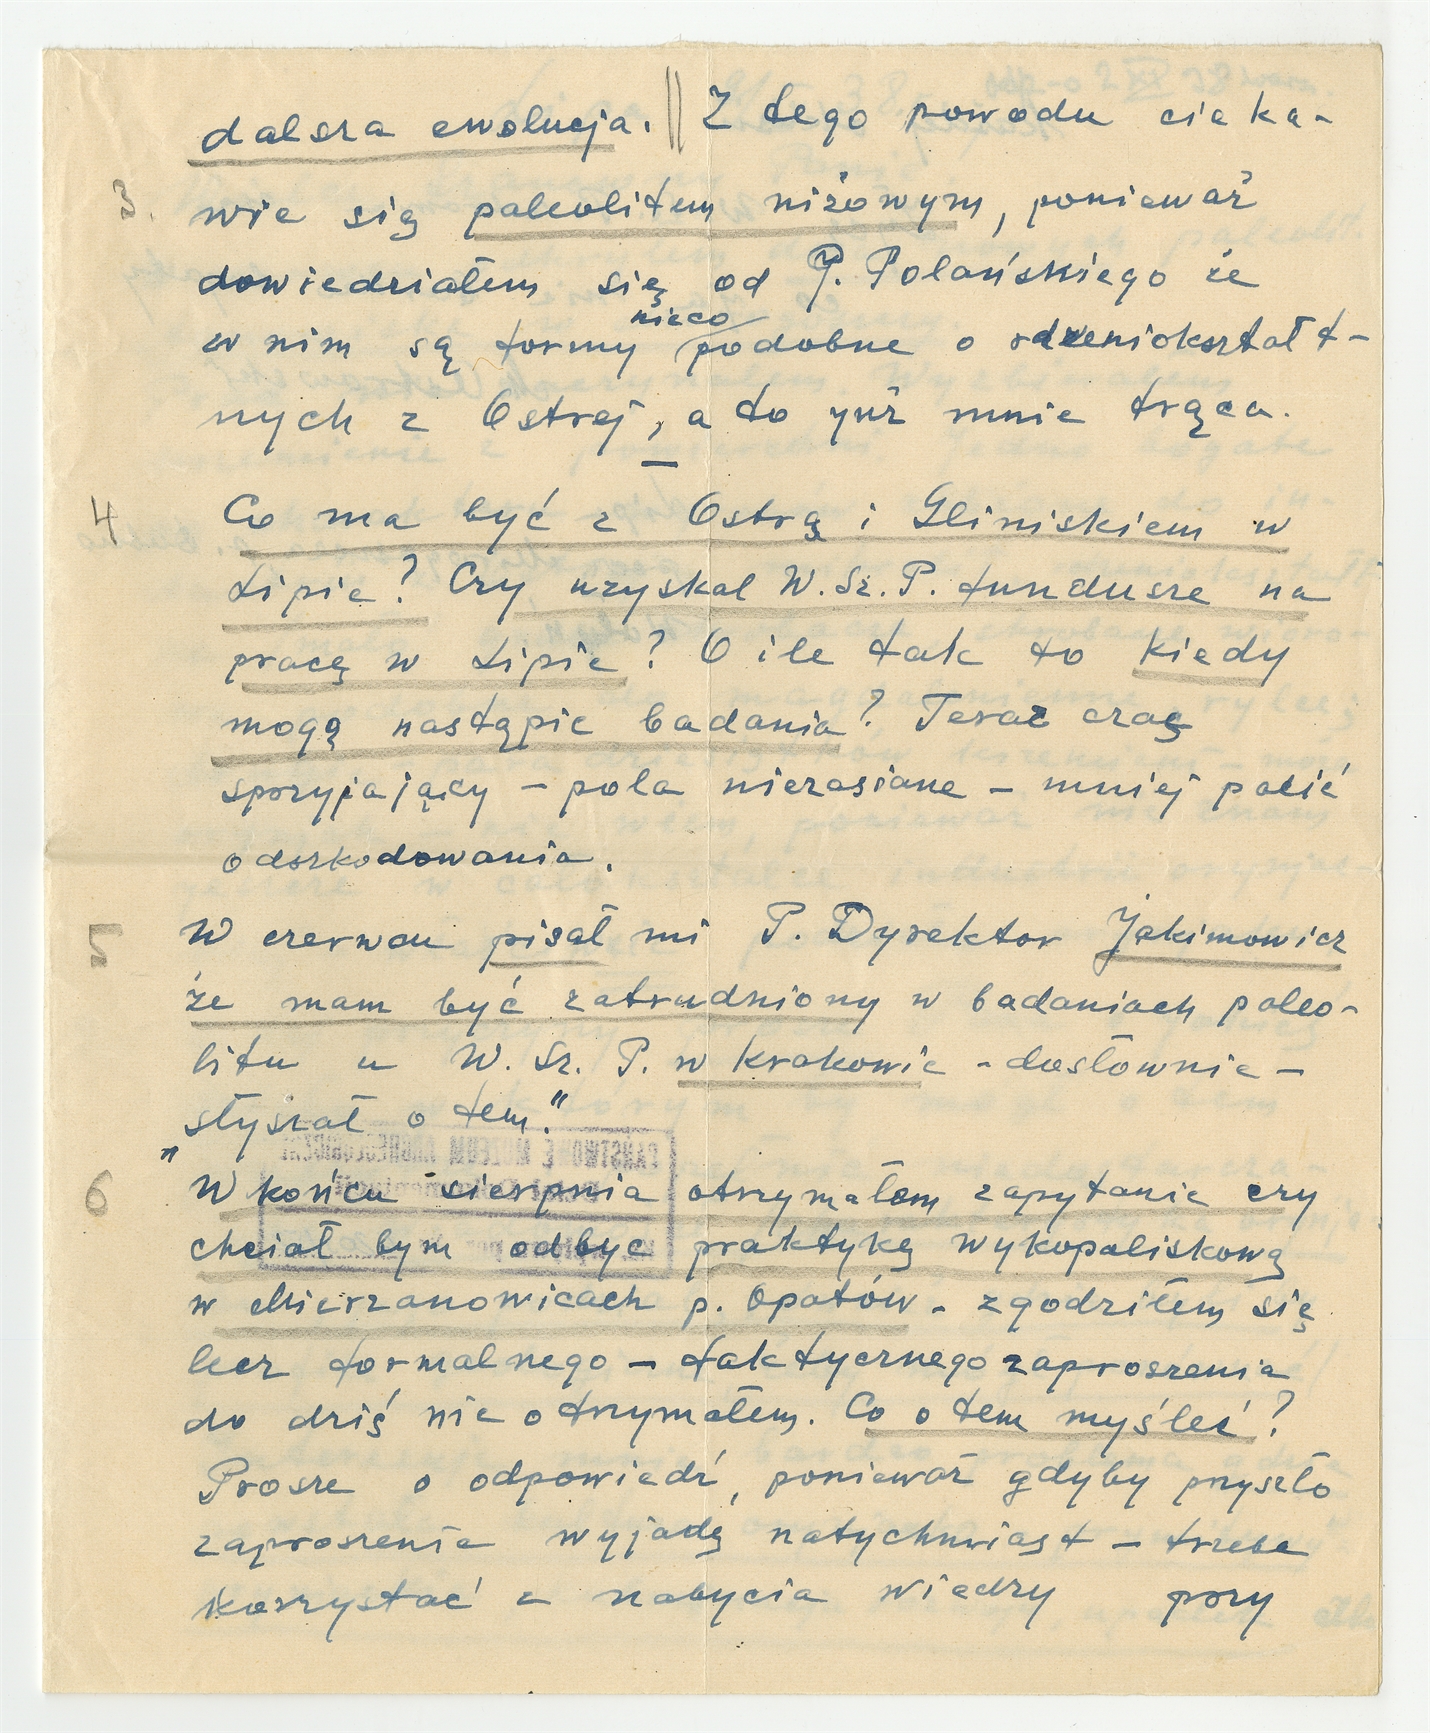 dalsza ewolucja. || Z tego powodu cieka-
3. wie się paleolitem niżowym, ponieważ
dowiedziałem się od P. Polańskiego że
nieco
w nim są formy podobne o rdzeniokształt-
nych z Ostrej, a to już mnie trąca.
—
4 Co ma być z Ostrą i Gliniskiem w
Lipie? Czy uzyskał W. Sz. P. fundusze na
pracę w Lipie? O ile tak to kiedy
mogą nastąpic badania? Teraz czas
sprzyjający – pola niezasiane – mniej pałić
odszkodowania.
5 W czerwcu pisał mi P. Dyrektor Jakimowicz
że mam być zatrudniony w badaniach paleo-
litu u W. Sz. P. w Krakowie – dosłownie –
„słyszał o tem."
6 W końcu sierpnia otrzymałem zapytanie czy
chciał bym odbyc praktykę wykopaliskową
w Mierzanowicach p. Opatów – zgodziłem się
lecz formalnego – faktycznego zaproszenia
do dziś nie otrzymałem. Co o tem myśleć?
Prosze o odpowiedź, ponieważ gdyby przyszło
zaproszenie wyjadę natychmiast – trzeba
korzystać z nabycia wiedzy przy
PAŃSTWOWE MUZEUM ARCHEOLOGICZNE